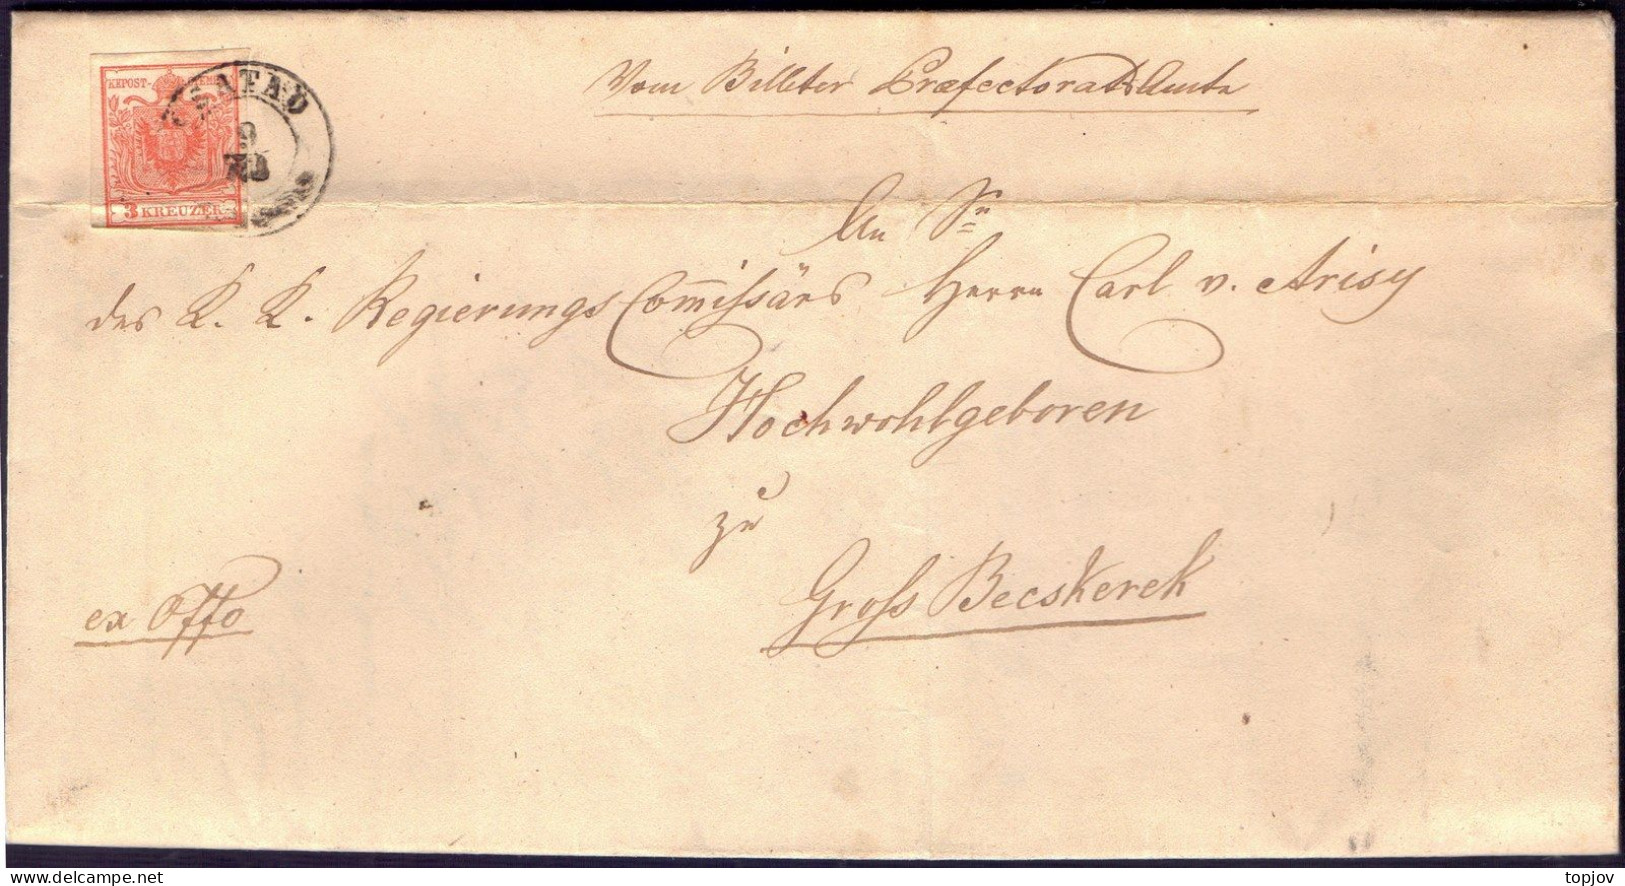 KKPOST-STEMPEL
CSATAD
9
3 KREUZER
Vom Billeter Præfectorats Amte
An Sr
des K. K. Regierungs Com̄issärs Herrn Carl v. Arisy
Hochwohlgeboren
zu
Gross Becskerek
ex Offo
delcampe.net
topjov